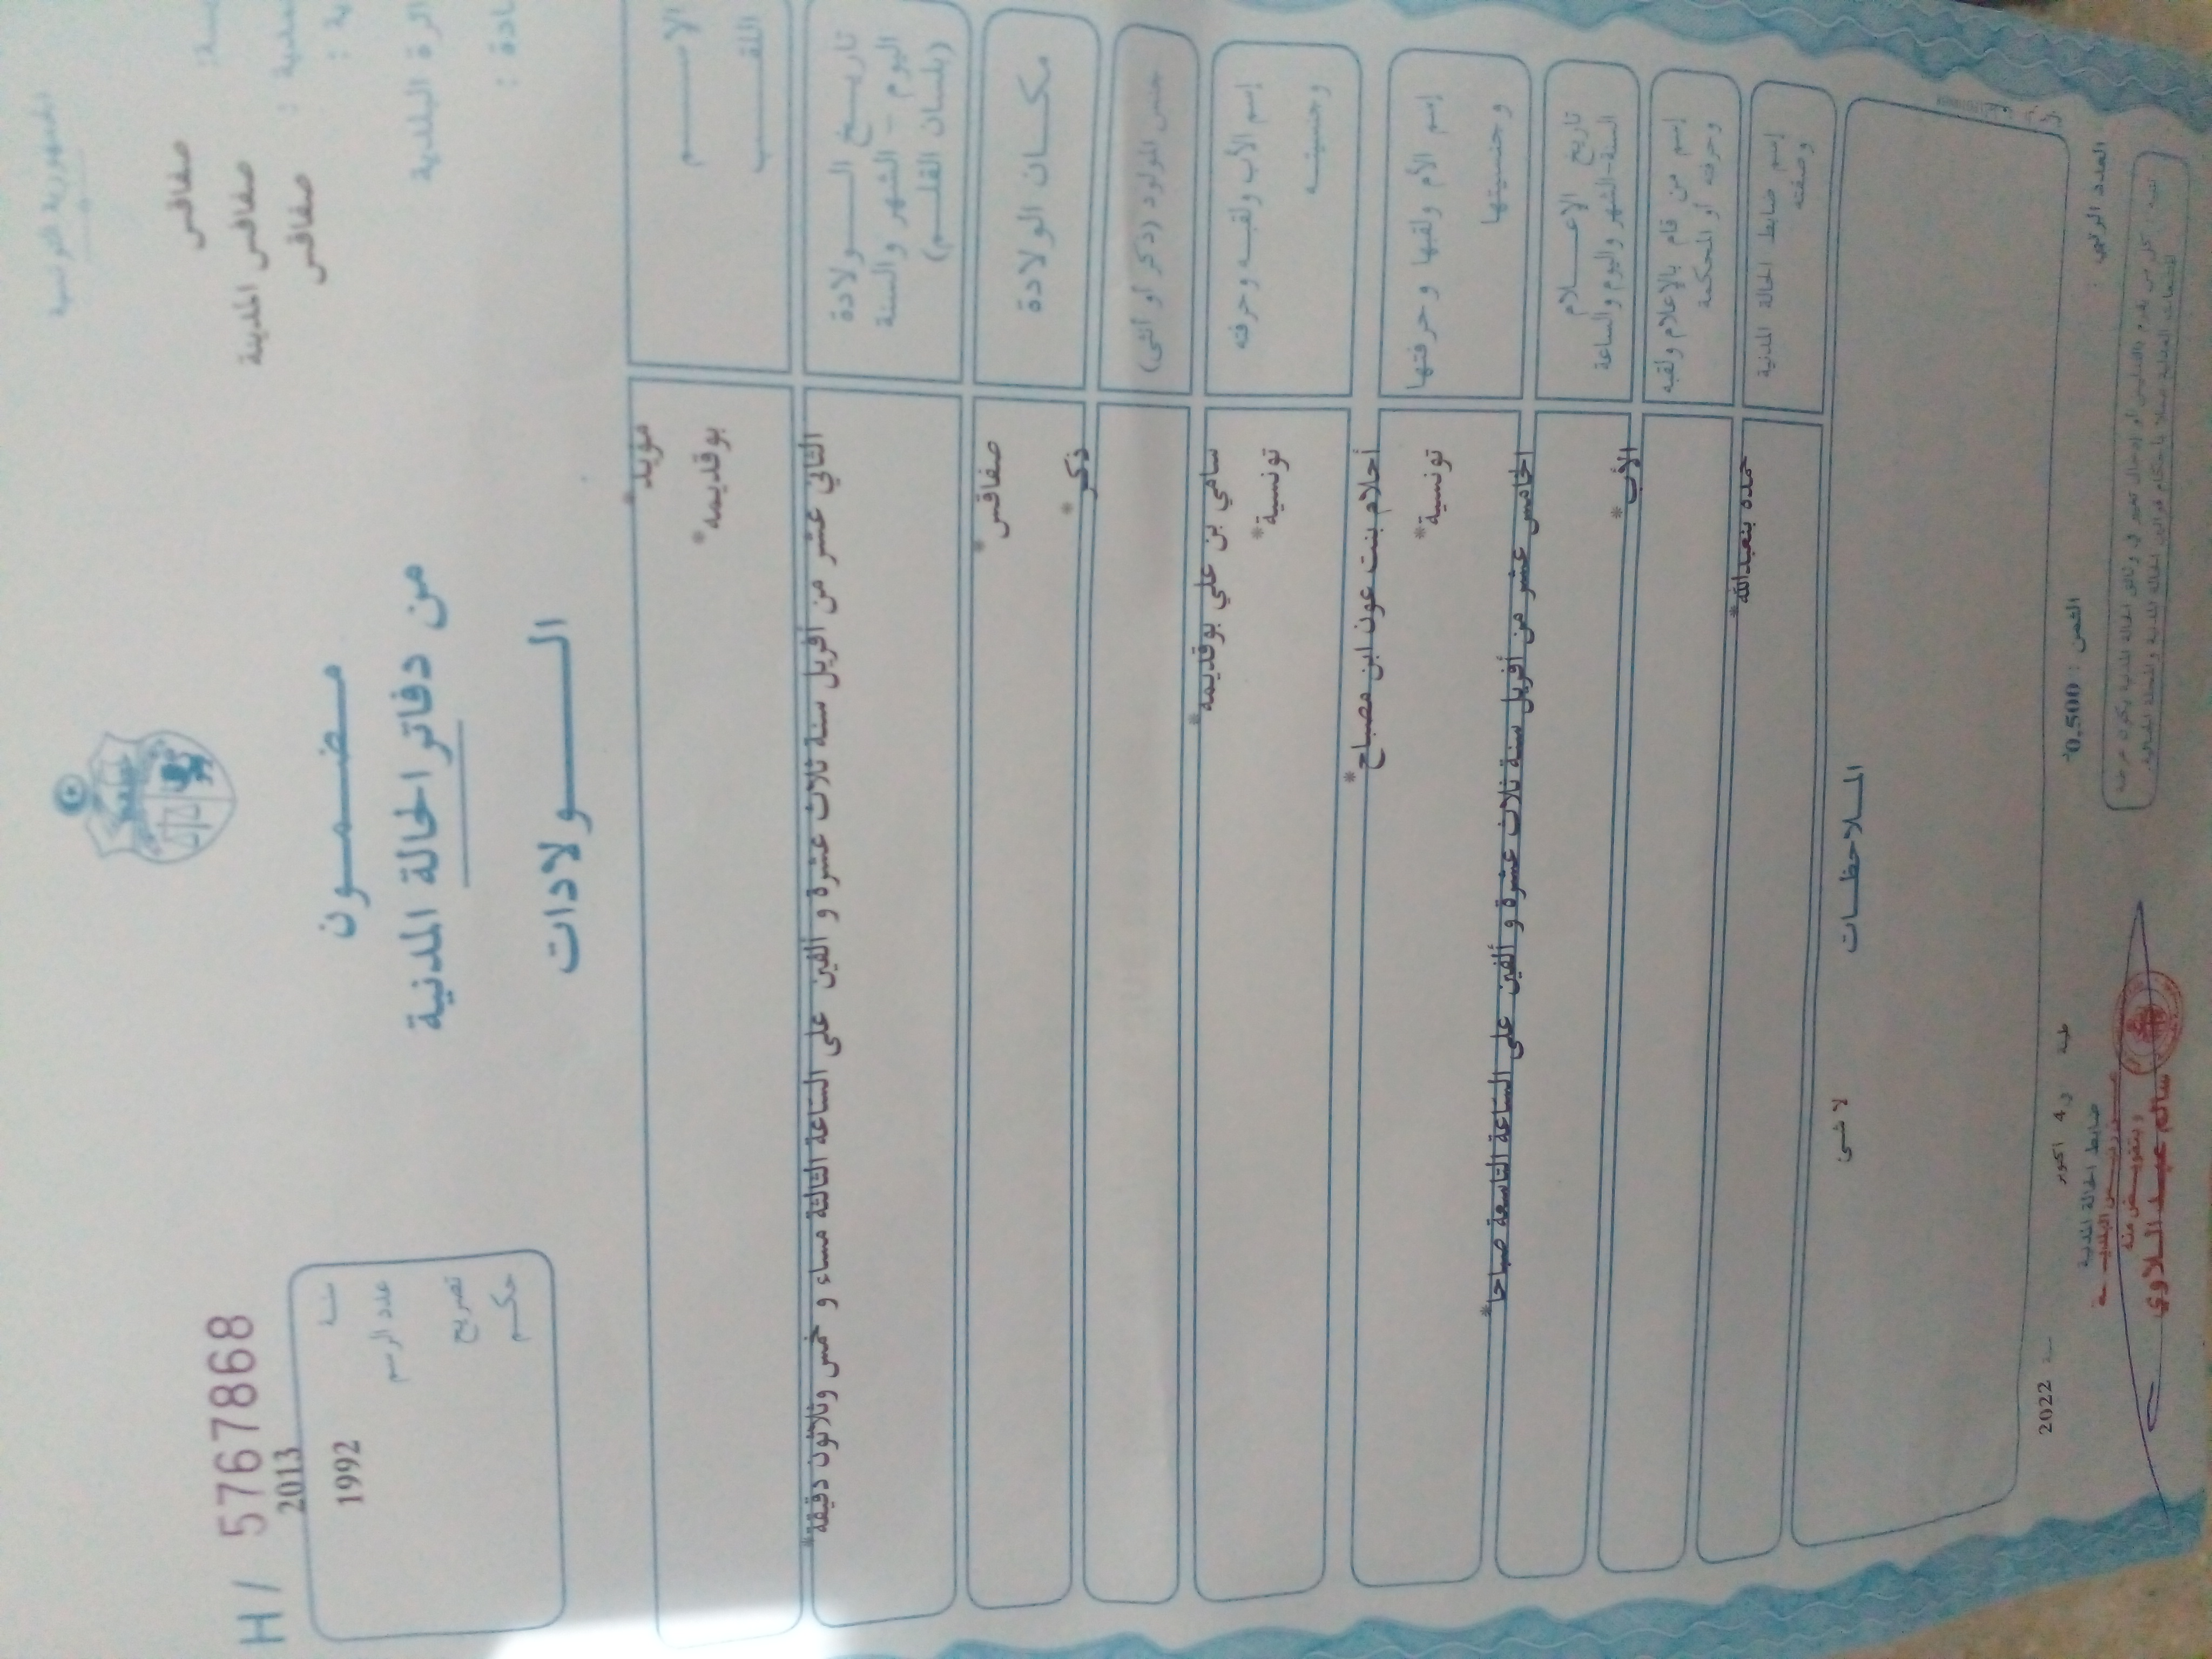 الجمهورية التونسية
صفاقس
صفاقس المدينة
صفاقس
H / 5767868
2013
سنة
1992
عدد الرسم
تصريح
حكم
مضمون
من دفاتر الحالة المدنية
الولادات
الاسم
مؤيد*
اللقب
بوقديمه*
تاريخ الولادة
اليوم - الشهر والسنة
(بلسان القلم)
الثاني عشر من أفريل سنة ثلاث عشرة و ألفين على الساعة الثالثة مساء و خمس وثلاثون دقيقة*
مكان الولادة
صفاقس*
جنس المولود (ذكر أو أنثى)
ذكر*
إسم الأب ولقبه وحرفته
سامي بن علي بوقديمه*
وجنسيته
تونسية*
إسم الأم ولقبها وحرفتها
أحلام بنت عون ابن مصباح*
وجنسيتها
تونسية*
تاريخ الإعلام
السنة-الشهر واليوم والساعة
الخامس عشر من أفريل سنة ثلاث عشرة و ألفين على الساعة التاسعة صباحا*
إسم من قام بالإعلام ولقبه
وحرفته أو المحكمة
الأب*
إسم ضابط الحالة المدنية
وصفته
حمده بنعبدالله*
الملاحظات
لا شئ
4 اكتوبر
سنة 2022
العدد الرتبي
الثمن : 0.500
ضابط الحالة المدنية
وبتفويض منه
سالم عبد السلاوي